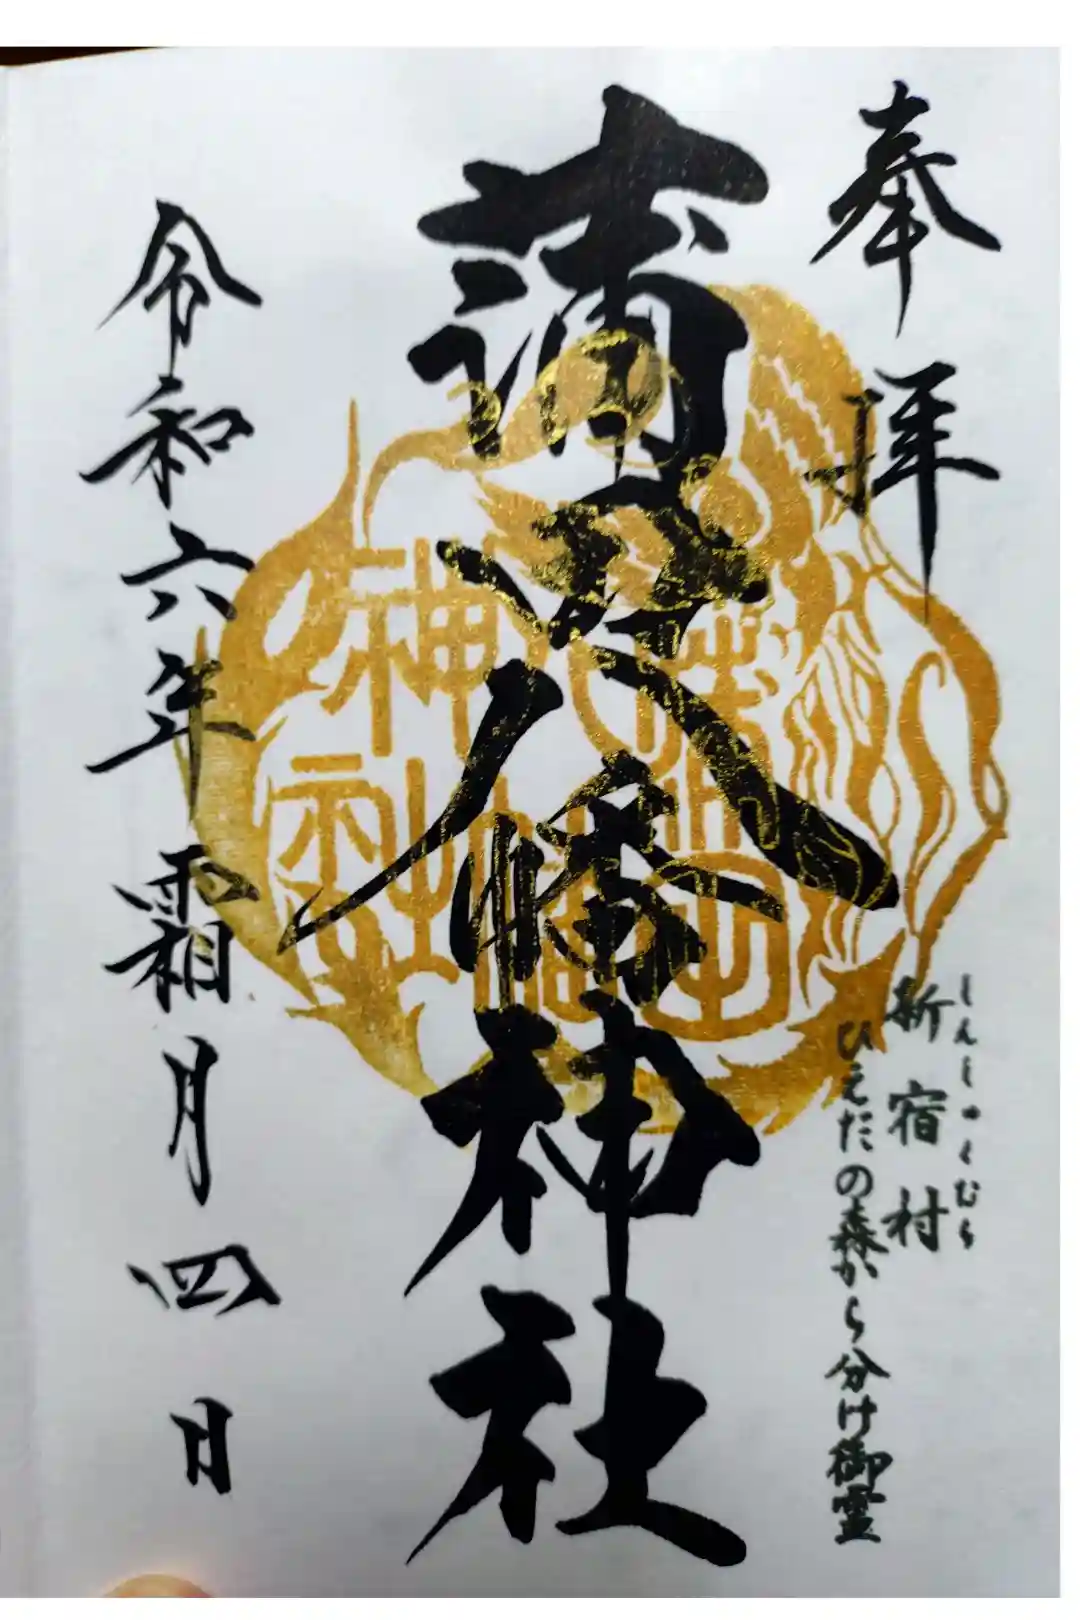 奉拝
しんしゅくむら
新宿村
ひえだの森から分け御霊
蒲田八幡神社
令和六年霜月四日